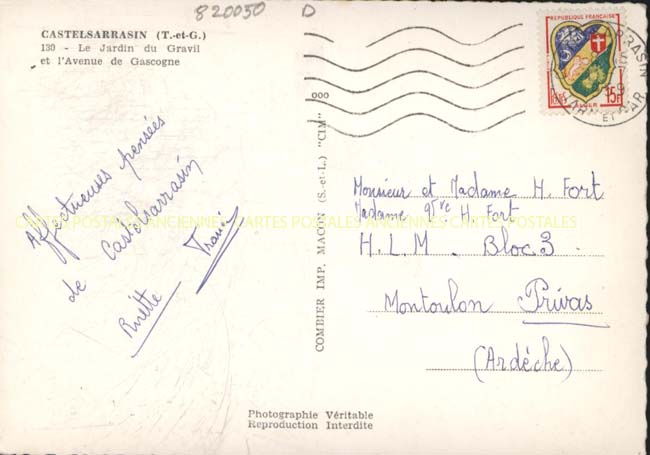 820050 D
CASTELSARRASIN (T.-et-G.)
130 - Le Jardin du Gravil
et l'Avenue de Gascogne
Affectueuses pensées
de Castelsarrasin
Rinette
COMBIER IMP. MACON (S.-et-L.) "CIM"
ooo
REPUBLIQUE FRANÇAISE
15F
ALGER
Monsieur et Madame H. Fort
Madame H. Fort
H.L.M. Bloc 3
Montoulon Privas
(Ardèche)
CARTES POSTALES ANCIENNES CARTES POSTALES ANCIENNES CARTES POSTALES
Photographie Véritable
Reproduction Interdite